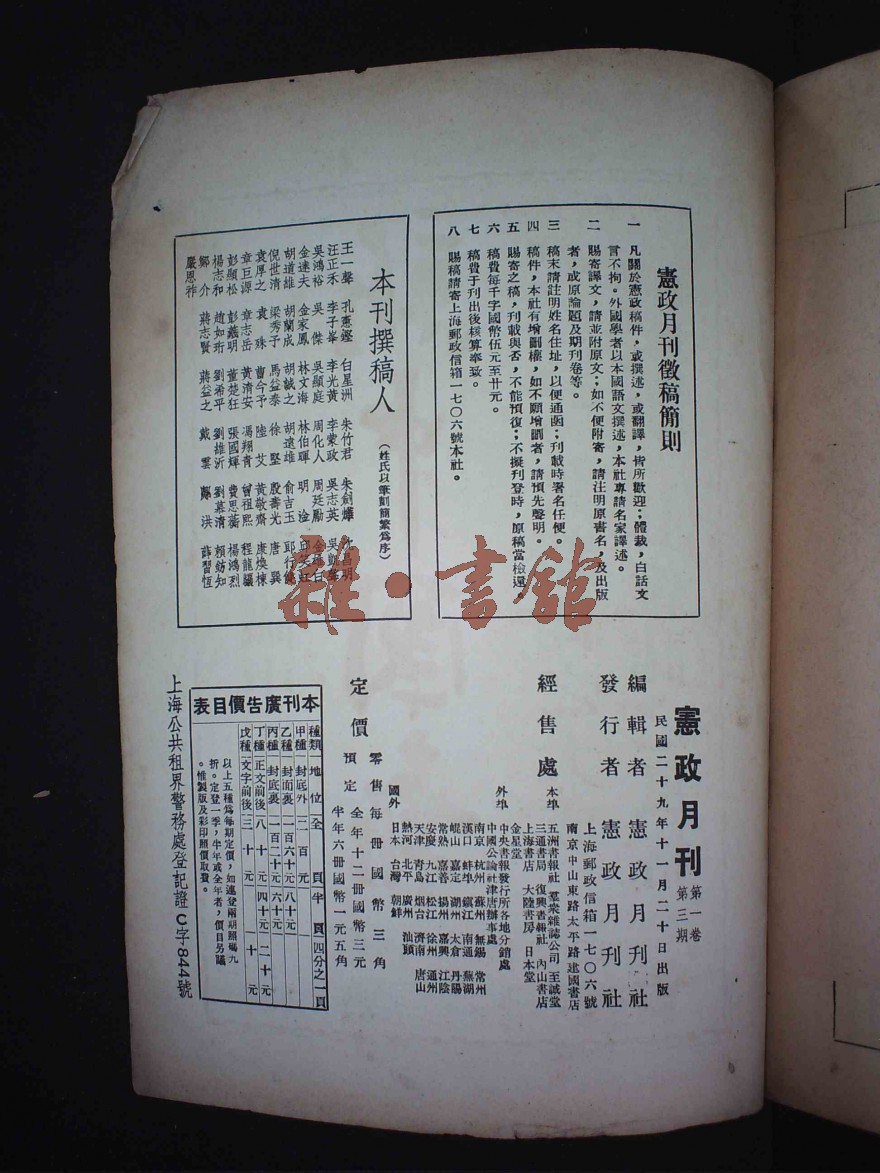 憲政月刊徵稿簡則
一 凡關於憲政稿件，或撰述，或翻譯，皆所歡迎；體裁，白話文
言不拘。外國學者以本國語文撰述，本社專請名家譯述。
二 賜寄譯文，請並附原文；如不便附寄，請注明原書名，及出版
者，或原論題及期刊卷等。
三 稿末請註明姓名住址，以便通函；刊載時署名任便。
四 稿件，本社有增刪權，如不願增刪者，請預先聲明。
五 賜寄之稿，刊載與否，不能預復；不擬刊登時，原稿當檢還
六 稿費每千字國幣伍元至廿元。
七 稿費于刊出後核算奉致。
八 賜稿請寄上海郵政信箱一七〇六號本社。
本刊撰稿人
（姓氏以筆劃簡繁為序）
王一聲 孔憲鏗 白星洲 朱竹君 朱劍
汪正禾 李子峯 李光黃 李蒙政 吳志英
吳鴻裕 吳傑 吳顯庭 周化人 周廷勵
金達夫 金家鳳 林文海 林伯暉 明淦
胡道雄 胡蘭成 胡誠之 胡道雄 俞吉玉
倪世清 梁秀子 馬益泰 徐堅 殷壽光 唐巽
袁厚之 袁殊 曹今予 陸艾 黃敬齋 康煥棟
章巨源 章志岳 黃清安 馮翔青 曾祖熙
彭顯松 彭義明 董楚狂 張國輝 費思 楊鴻烈
楊志和 趙如珩 劉希平 劉雄沂 劉慕清 賴鈁知
鄭介 蔣志賢 蔣益之 戴雲 鄭洪 薛習恆
嚴恩祚
憲政月刊
第一卷
第三期
民國二十九年十一月二十日出版
編輯者 憲政月刊社
發行者 憲政月刊社
上海郵政信箱一七〇六號
南京中山東路太平路建國書店
經售處
本埠
五洲書報社 羣衆雜誌公司 至誠堂
三通書局 復興書報社 內山書店
上海書店 大陸書房 日本堂
金星堂
外埠
中央書報發行所各地分銷處
中國公論社津唐辦事處
南京 杭州 蘇州 無錫 常州
漢口 蚌埠 鎮江 南通 蕪湖
崐山 嘉定 湖州 太倉 丹陽
常熟 嘉善 揚州 嘉興 江陰
安慶 九江 松江 徐州 通州
天津 青島 烟台 濟南 唐山
熱河 北平 廣州 汕頭
國外
日本 台灣 朝鮮
定價
零售每冊國幣三角
預定 全年十二冊國幣三元
半年六冊國幣一元五角
本刊廣告價目表
種類 地位 全頁 半頁 四分之一頁
甲種 封底外 二百元
乙種 封面裏 一百六十元 八十元
丙種 封底裏 一百二十元 六十元
丁種 正文前後 八十元 四十元 二十元
戊種 文字前後 三十元 十元
以上五種為每期定價，如連登兩期照碼九
折。定登一季，半年或全年者，價目另議
。惟製版及彩印照價取費。
上海公共租界警務處登記證C字844號
雜·書館